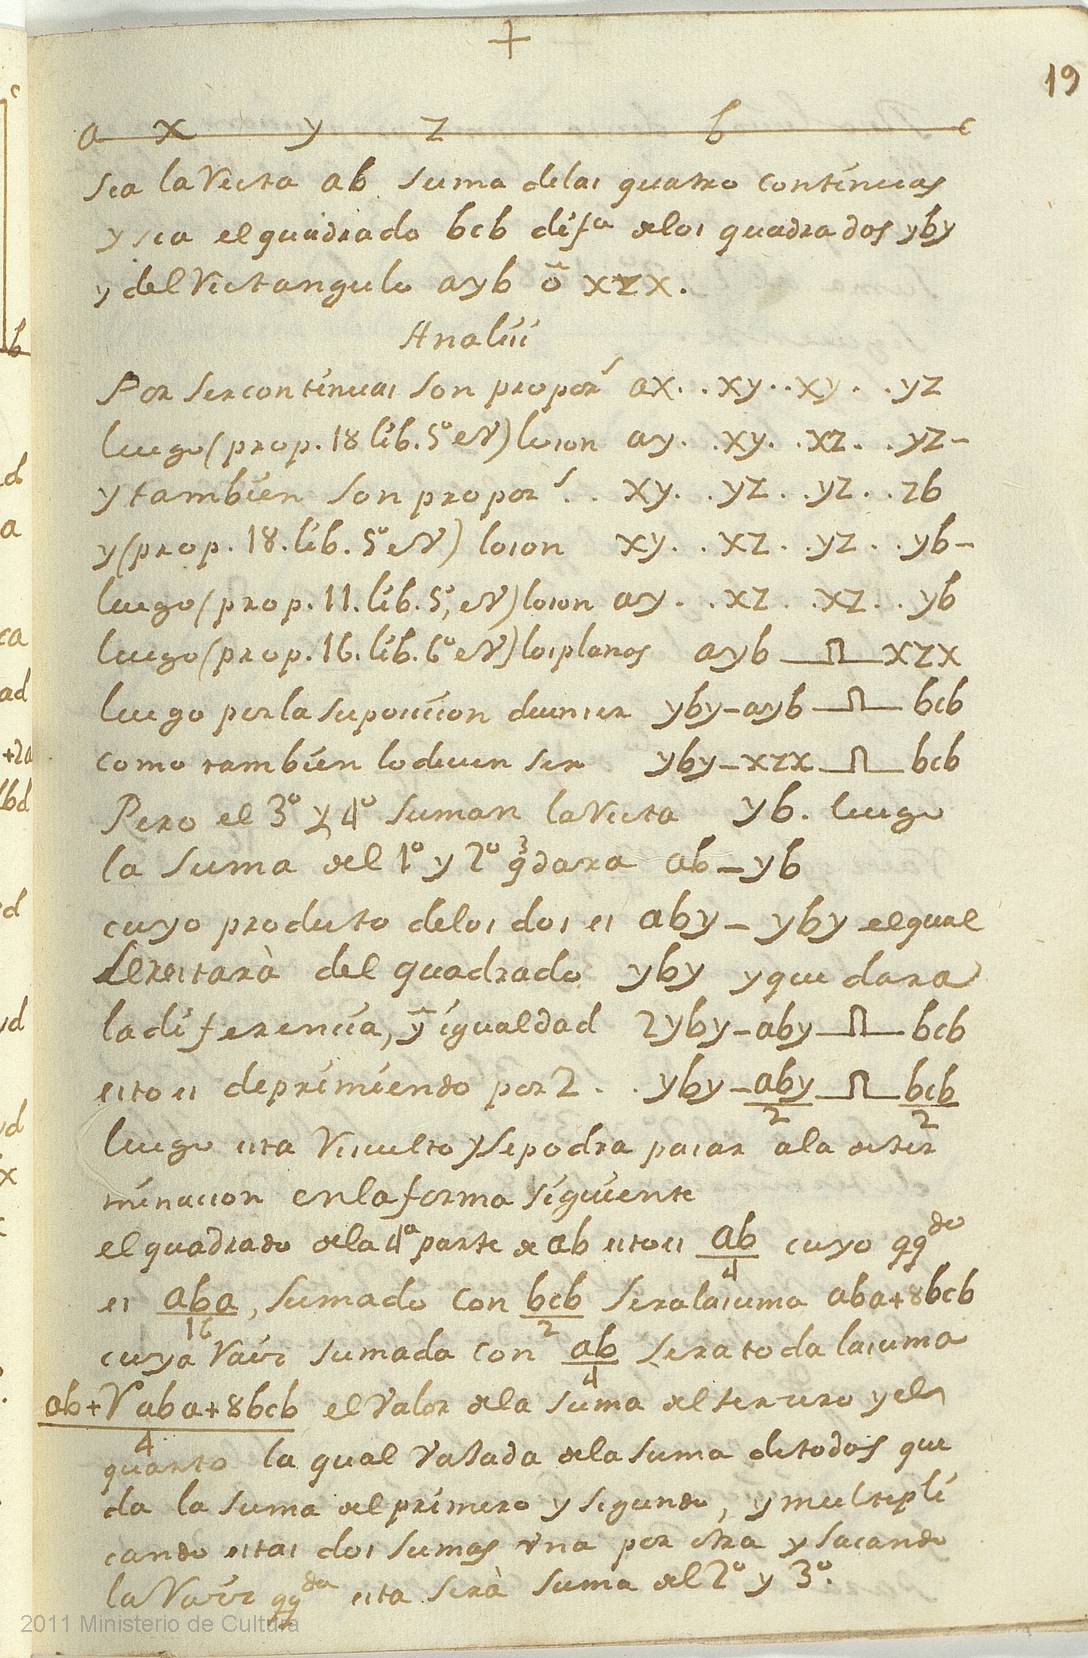 19
a x y z b c
sea la recta ab suma delas quatro continuas
y sea el quadrado bcb difª delos quadrados yby
y del rectangulo ayb ō xzx.
Analisi
Por ser continuas son propor.s ax. . xy. . xy. . yz
luego (prop. 18 lib. 5º el V) lo son ay. . xy. . xz. . yz-
y tambien son propor.s . . xy. . yz. . yz. . zb
y (prop. 18. lib. 5º el V) lo son xy. . xz. . yz. . yb-
luego (prop. 11. lib. 5º, el V) lo son ay. . xz. . xz. . yb
luego (prop. 16. lib. 6º el V) los planos ayb ⨅ xzx
luego por la suposicion deven ser yby-ayb ⨅ bcb
como tambien lo deven ser yby-xzx ⨅ bcb
Pero el 3º y 4º suman la recta yb. luego
la suma del 1º y 2º qdara ab-yb
cuyo producto delos dos es aby- yby el qual
se restarà del quadrado yby y que dara
la diferencia, y igualdad 2yby-aby ⨅ bcb
esto es deprimiendo por 2 . . yby-aby/2 ⨅ bcb/2
luego esta resuelto y se podra pasar ala deter
minacion en la forma siguiente
el quadrado dela 4ª parte de ab esto es ab/4 cuyo qqdo
es aba/16, sumado con bcb/2 sera la suma aba+8bcb
cuya raiz sumada con ab/4 sera toda la suma
ab+V aba+8bcb/4 el valor dela suma del tercero y el
quarto la qual restada dela suma de todos que
da la suma del primero y segundo, y multipli
cando estas dos sumas vna por otra y sacando
la raiz qqda esta serà suma del 2º y 3º.
2011 Ministerio de Cultura